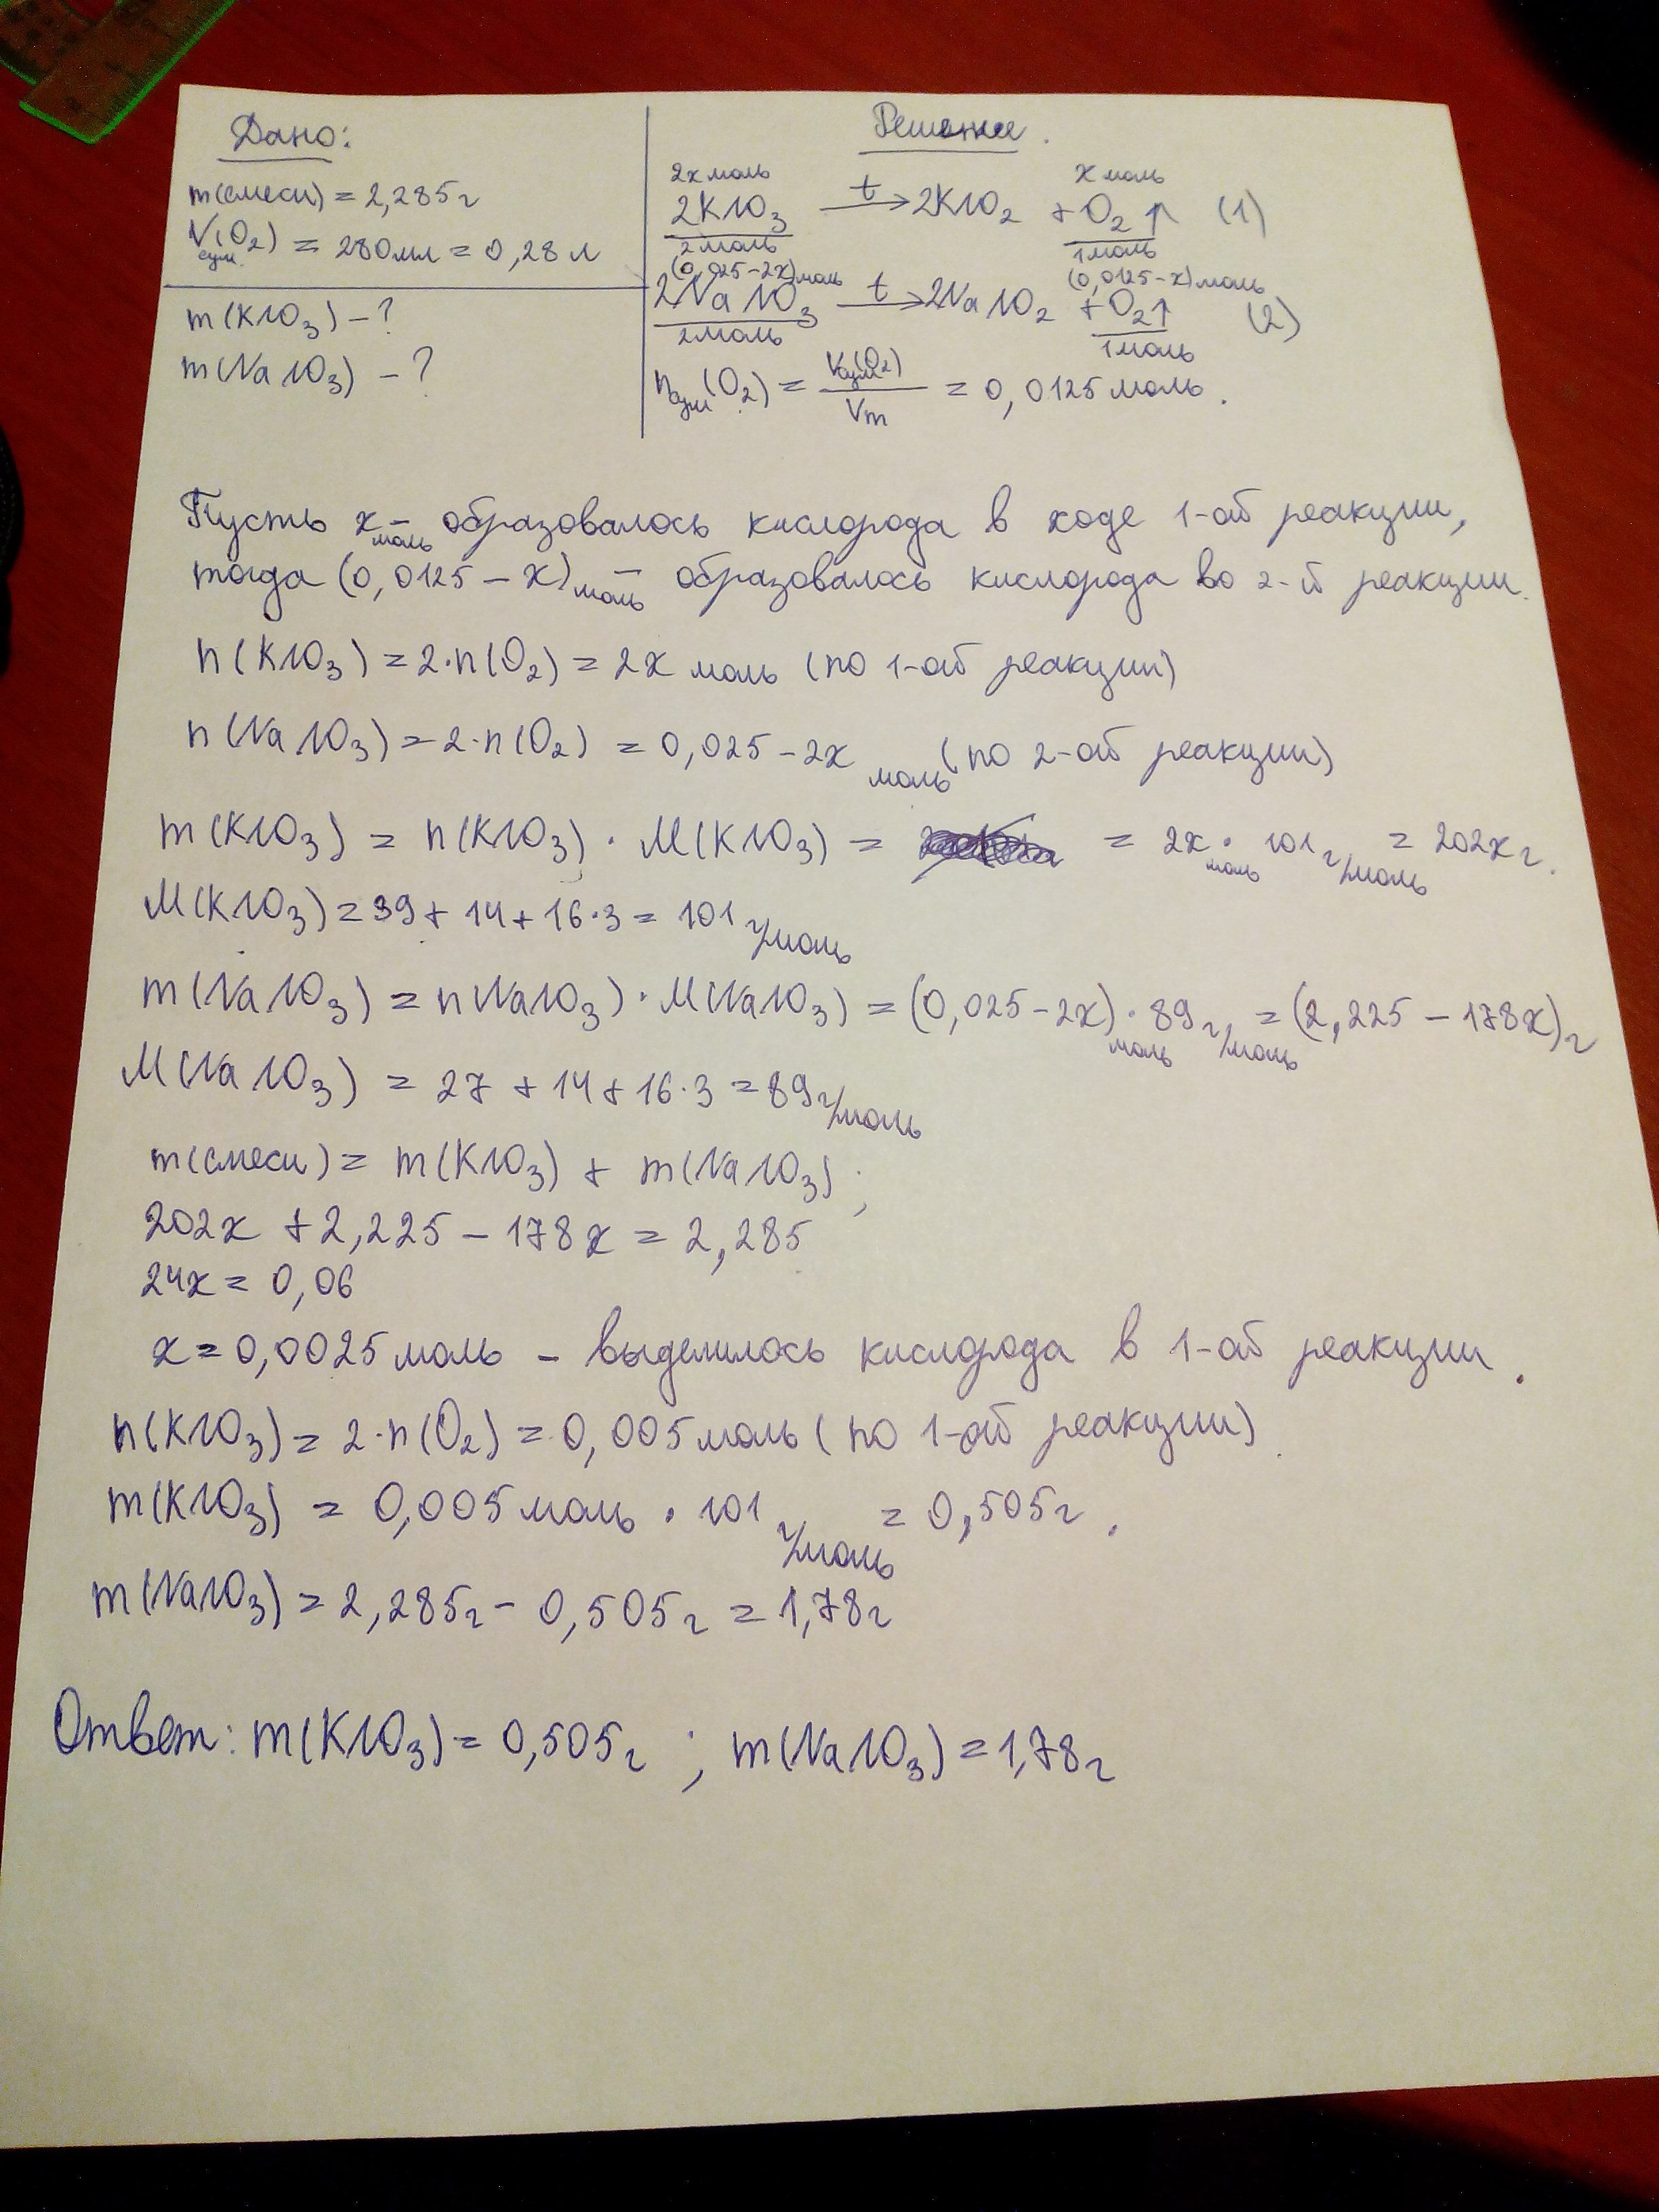 Дано:
m(смеси) = 2,285г
Vсум.(O2) = 280мл = 0,28 л
m(KNO3) – ?
m(NaNO3) – ?
Решение.
2x моль x моль
2KNO3 t→ 2KNO2 + O2↑ (1)
2моль 1моль
(0,025-2x)моль (0,0125-x)моль
2NaNO3 t→ 2NaNO2 + O2↑ (2)
2моль 1моль
nсум(O2) = Vсум(O2)/Vm = 0,0125 моль.
Пусть x моль – образовалось кислорода в ходе 1-ой реакции,
тогда (0,0125 – x) моль – образовалось кислорода во 2-й реакции.
n(KNO3) = 2·n(O2) = 2x моль (по 1-ой реакции)
n(NaNO3) = 2·n(O2) = 0,025 – 2x моль (по 2-ой реакции)
m(KNO3) = n(KNO3) · M(KNO3) = = 2x моль · 101 г/моль = 202x г.
M(KNO3) = 39 + 14 + 16·3 = 101 г/моль
m(NaNO3) = n(NaNO3) · M(NaNO3) = (0,025 – 2x) моль · 89 г/моль = (2,225 – 178x) г
M(NaNO3) = 27 + 14 + 16·3 = 89 г/моль
m(смеси) = m(KNO3) + m(NaNO3);
202x + 2,225 – 178x = 2,285
24x = 0,06
x = 0,0025 моль – выделилось кислорода в 1-ой реакции.
n(KNO3) = 2·n(O2) = 0,005 моль (по 1-ой реакции)
m(KNO3) = 0,005 моль · 101 г/моль = 0,505г.
m(NaNO3) = 2,285г – 0,505г = 1,78г
Ответ: m(KNO3) = 0,505г ; m(NaNO3) = 1,78г